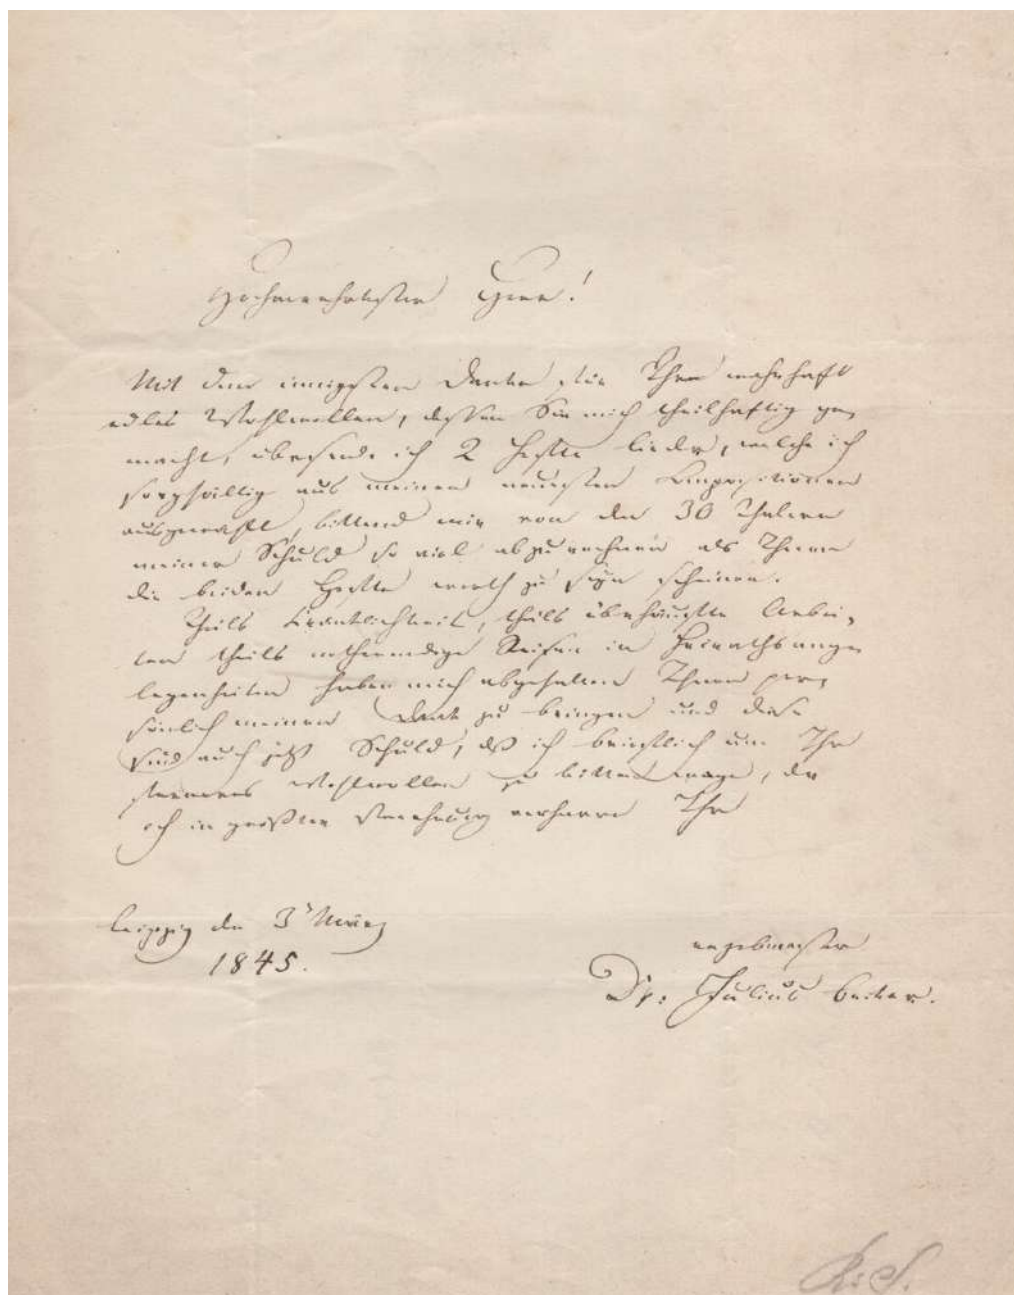 Hochverehrtester Herr!
Mit dem innigsten Danke für Ihr wahrhaft
edles Wohlwollen, dessen Sie mich theilhaftig ge-
macht, übersende ich 2 Hefte Lieder, welche ich
sorgfältig aus meinen neuesten Compositionen
ausgewählt, bittend mir von den 30 Thalern
meiner Schuld so viel abzurechnen als Ihnen
die beiden Hefte werth zu seyn scheinen.
Theils Kränklichkeit, theils überhäufte Arbei-
ten theils nothwendige Reisen in Heirathsange-
legenheiten haben mich abgehalten Ihnen per-
sönlich meinen Dank zu bringen und diese
sind auch jetzt Schuld, daß ich brieflich um Ihr
ferneres Wohlwollen zu bitten wage, der
ich in größter Verehrung verharre Ihr
Leipzig den 3 März
1845.
ergebenster
Dr. Julius Becker.
R. S.